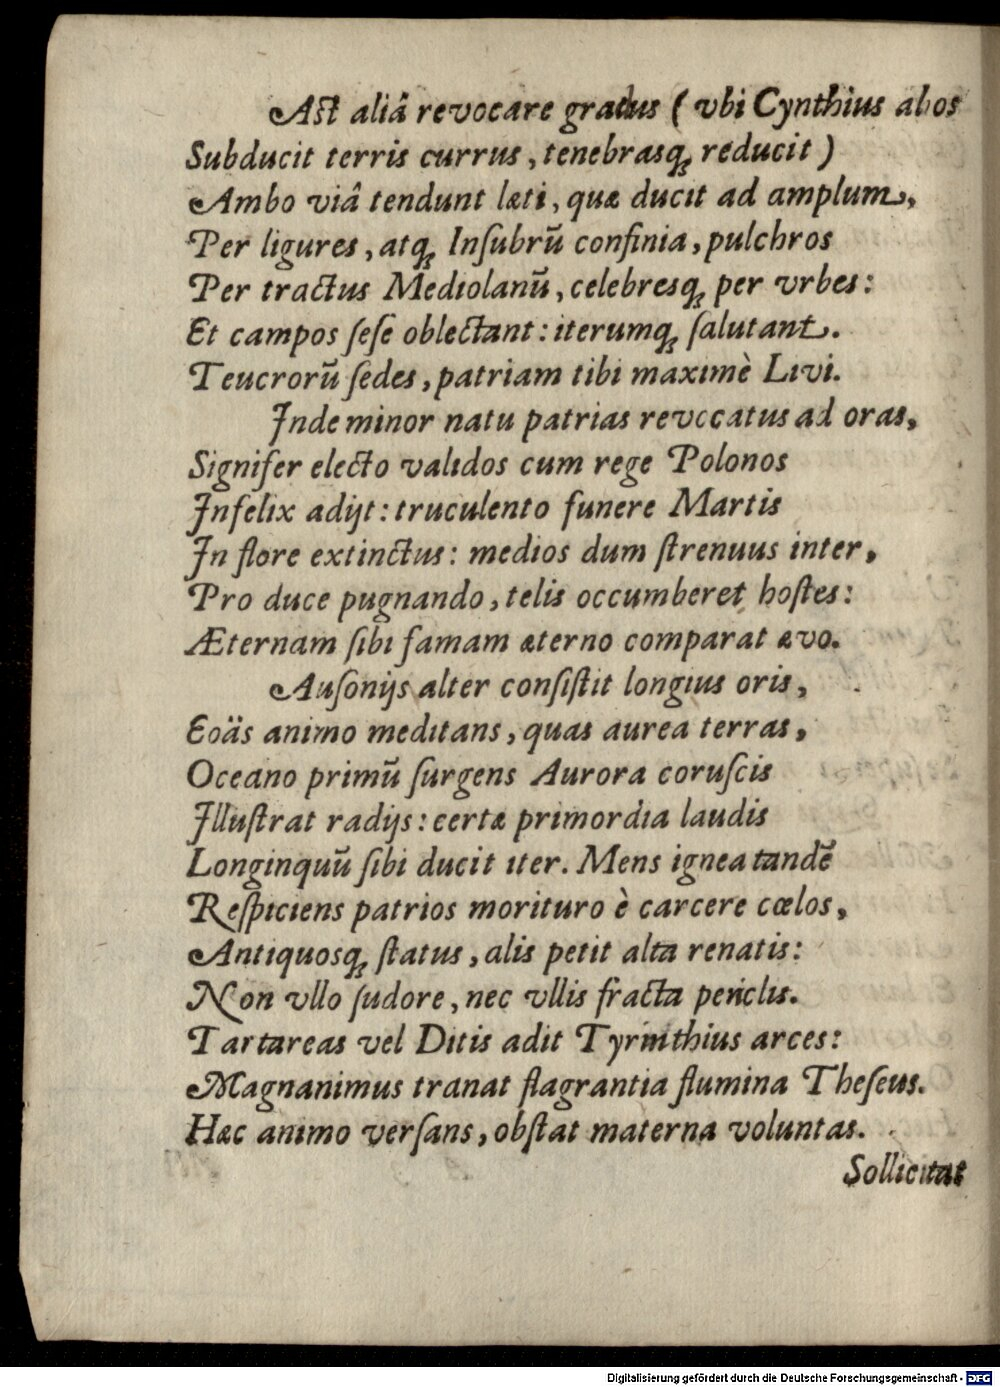 Aſt aliâ revocare gradus ( vbi Cynthius albos
Subducit terris currus, tenebrasq́ꝫ reducit )
Ambo viâ tendunt læti, quæ ducit ad amplum,
Per ligures, atqꝫ Inſubrũ confinia, pulchros
Per tractus Mediolanũ, celebresqꝫ per vrbes:
Et campos ſeſe oblectant: iterumqꝫ ſalutant.
Teucrorũ ſedes, patriam tibi maximè Livi.
Inde minor natu patrias revocatus ad oras,
Signifer electo validos cum rege Polonos
Infelix adijt: truculento funere Martis
In flore extinctus: medios dum ſtrenuus inter,
Pro duce pugnando, telis occumberet hoſtes:
Æternam ſibi famam æterno comparat ævo.
Auſonijs alter conſiſtit longius oris,
Eoäs animo meditans, quas aurea terras,
Oceano primũ ſurgens Aurora coruſcis
Illuſtrat radijs: certæ primordia laudis
Longinquũ ſibi ducit iter. Mens ignea tandẽ
Reſpiciens patrios morituro è carcere cœlos,
Antiquosqꝫ ſtatus, alis petit alta renatis:
Non vllo ſudore, nec vllis fracta periclis.
Tartareas vel Ditis adit Tyrinthius arces:
Magnanimus tranat flagrantia flumina Theſeus.
Hæc animo verſans, obſtat materna voluntas.
Sollicitat
Digitalisierung gefördert durch die Deutsche Forschungsgemeinschaft - DFG